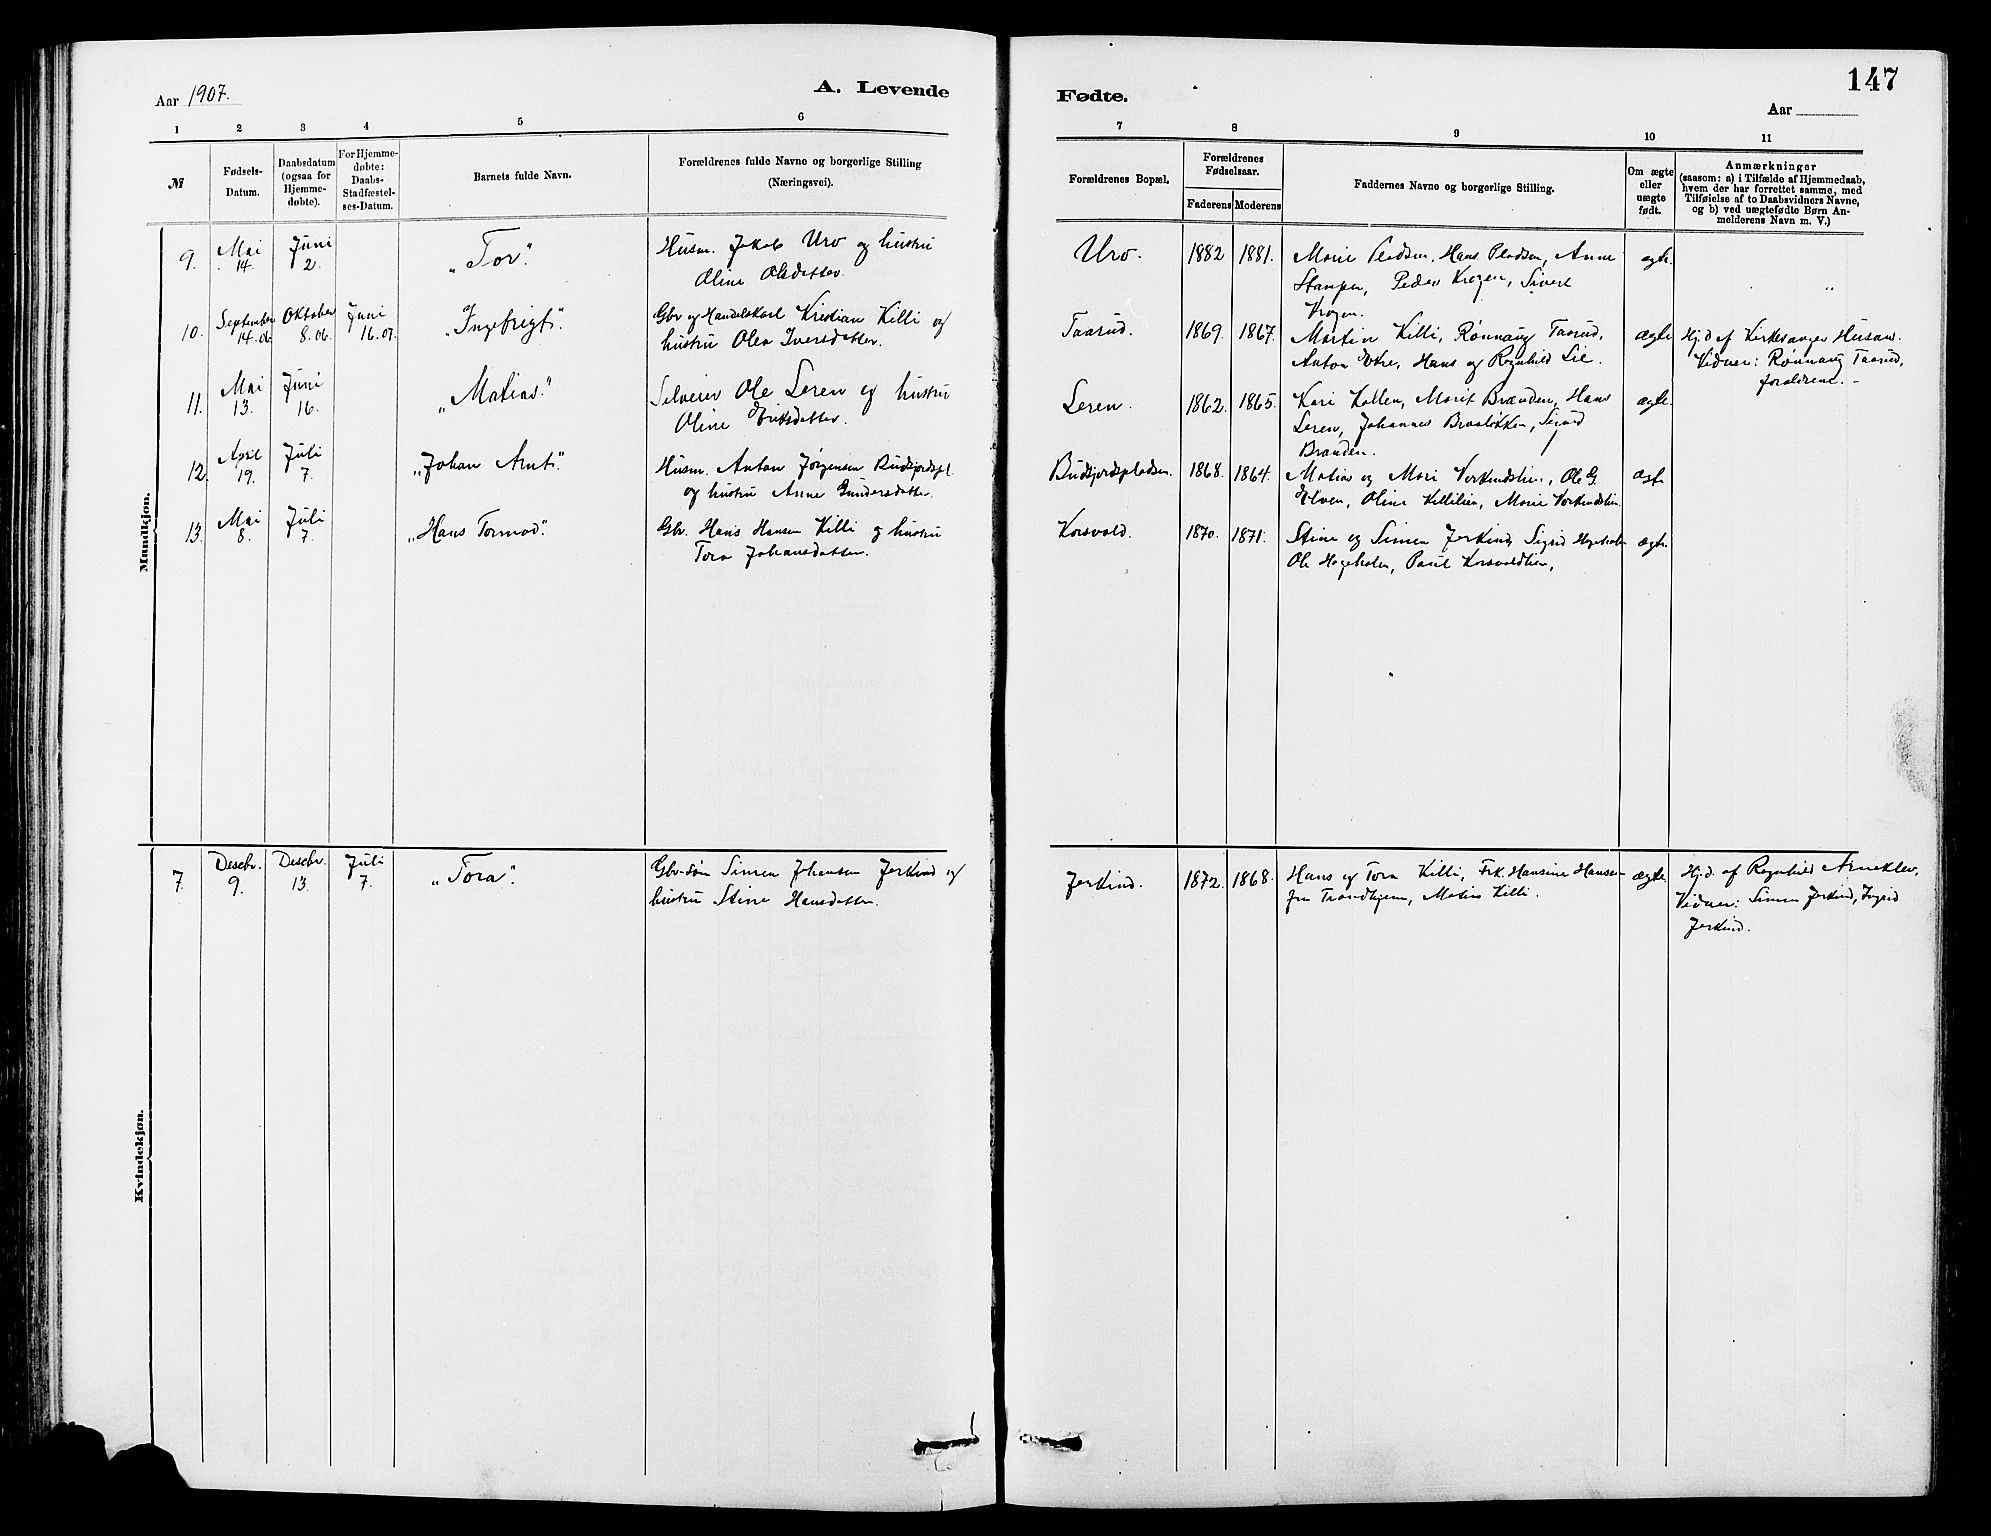 147
Aar 1907.
A. Levende
Fødte.
Aar
1 2 3 4 5 6
7 8 9 10 11
№
Fødsels-
Datum.
Daabsdatum
(ogsaa for
Hjemme-
døbte).
For Hjemme-
døbte:
Daabs-
Stadfæstel-
ses-Datum.
Barnets fulde Navn.
Forældrenes fulde Navne og borgerlige Stilling
(Næringsvei).
Forældrenes Bopæl.
Forældrenes
Fødselsaar.
Faderens Moderens
Faddernes Navne og borgerlige Stilling.
Om ægte
eller
uægte
født.
Anmærkninger
(saasom: a) i Tilfælde af Hjemmedaab,
hvem der har forrettet samme, med
Tilføielse af to Daabsvidners Navne,
og b) ved uægtefødte Børn An-
melderens Navn m. V.)
Mandkjøn.
9. Mai 14. Juni 2. „Tor." Husm. Jakob Uro og hustru
Oline Olsdatter.
Uro. 1882 1881. Marie Pladsen, Hans Pladsen, Anne ægte.
Stampen, Peder Krogen, Sivert
Krogen.
10. September 14.06 Oktober 8.06. Juni 16.07. „Ingefrigt". Gbr og Handelskarl Kristian Killi og
hustru Olea Iversdatter.
Taarud. 1869. 1867. Martin Killi, Rønnaug Taarud, ægte Hj.d af Kirkesanger Husaas.
Anton Øvre, Hans og Ragnhild Lie. Vidner: Rønnaug Taarud,
forældrene. -
11. Mai 13. Juni 16. „Matias." Selveier Ole Leren og hustru
Oline Eriksdatter.
Leren. 1862. 1865. Kari Kollen, Marit Brænden, Hans ægte.
Leren, Johannes Braaløkken, Sigurd
Brænden.
12. April 19. Juli 7. „Johan Arnt". Husm. Anton Jørgensen Budsjordspl.
og hustru Anne Gundersdatter.
Budsjordspladsen. 1868. 1864. Matias og Mari Verkendslien, Ole G. ægt.
Elven, Oline Killilien, Marie Verkendslien.
13. Mai 8. Juli 7. „Hans Tormod". Gbr. Hans Hansen Killi og hustru
Tora Johansdatter.
Korsvold. 1870. 1871. Stine og Simen Jerkind, Sigrid Hageholen ægte.
Ole Hageholen, Paul Korsvoldlien,
Kvindekjøn.
7. Desebr. 9. Desebr. 13. Juli 7. „Tora". Gbr-søn Simen Johansen Jerkind og
hustru Stine Hansdatter.
Jerkind. 1872. 1868. Hans og Tora Killi, Frk. Hansine Hansen ægte Hj.d. af Ragnhild Arneklev,
fra Trondhjem, Matias Killi. Vidner: Simen Jerkind, Ingrid
Jerkind.